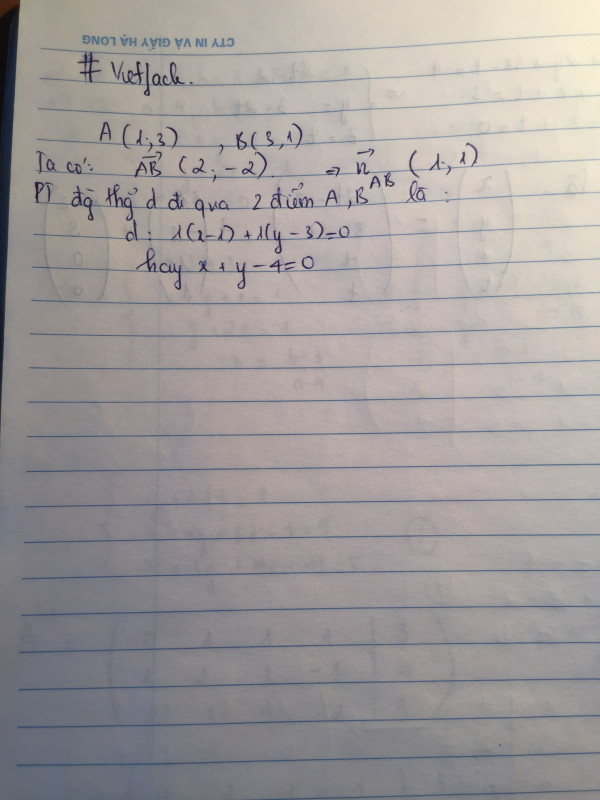 CTY IN VÀ GIẤY HẠ LONG
# VietJack.
A (1; 3) , B(3, 1)
Ta có: $\overrightarrow{AB}$ (2; -2). ⇒ $\overrightarrow{n}_{AB}$ (1; 1)
PT đg thg d đi qua 2 điểm A, B là :
d: 1(x-1) + 1(y-3)=0
hay x + y - 4 = 0